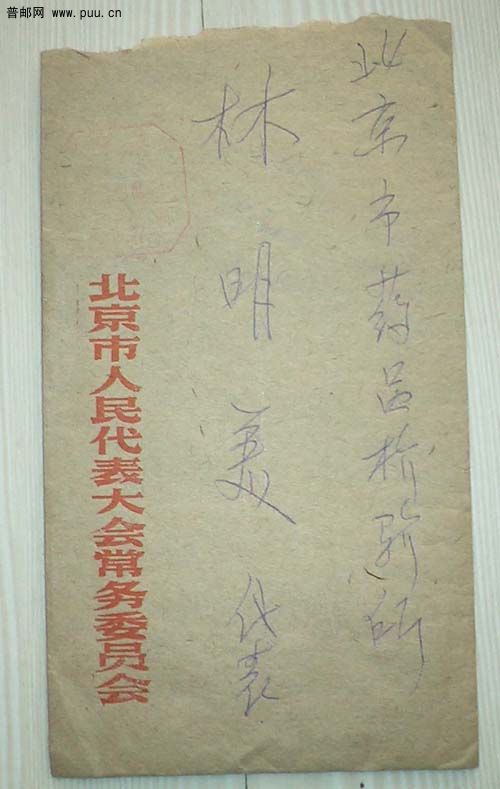 普邮网 www.puu.cn
北京市药品检验所
林明美 代表
北京市人民代表大会常务委员会